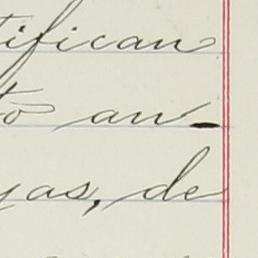 tifican
to an-
yas, de